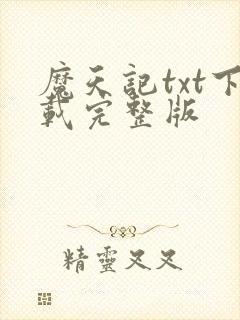 魔天記txt下
載完整版
精靈又又